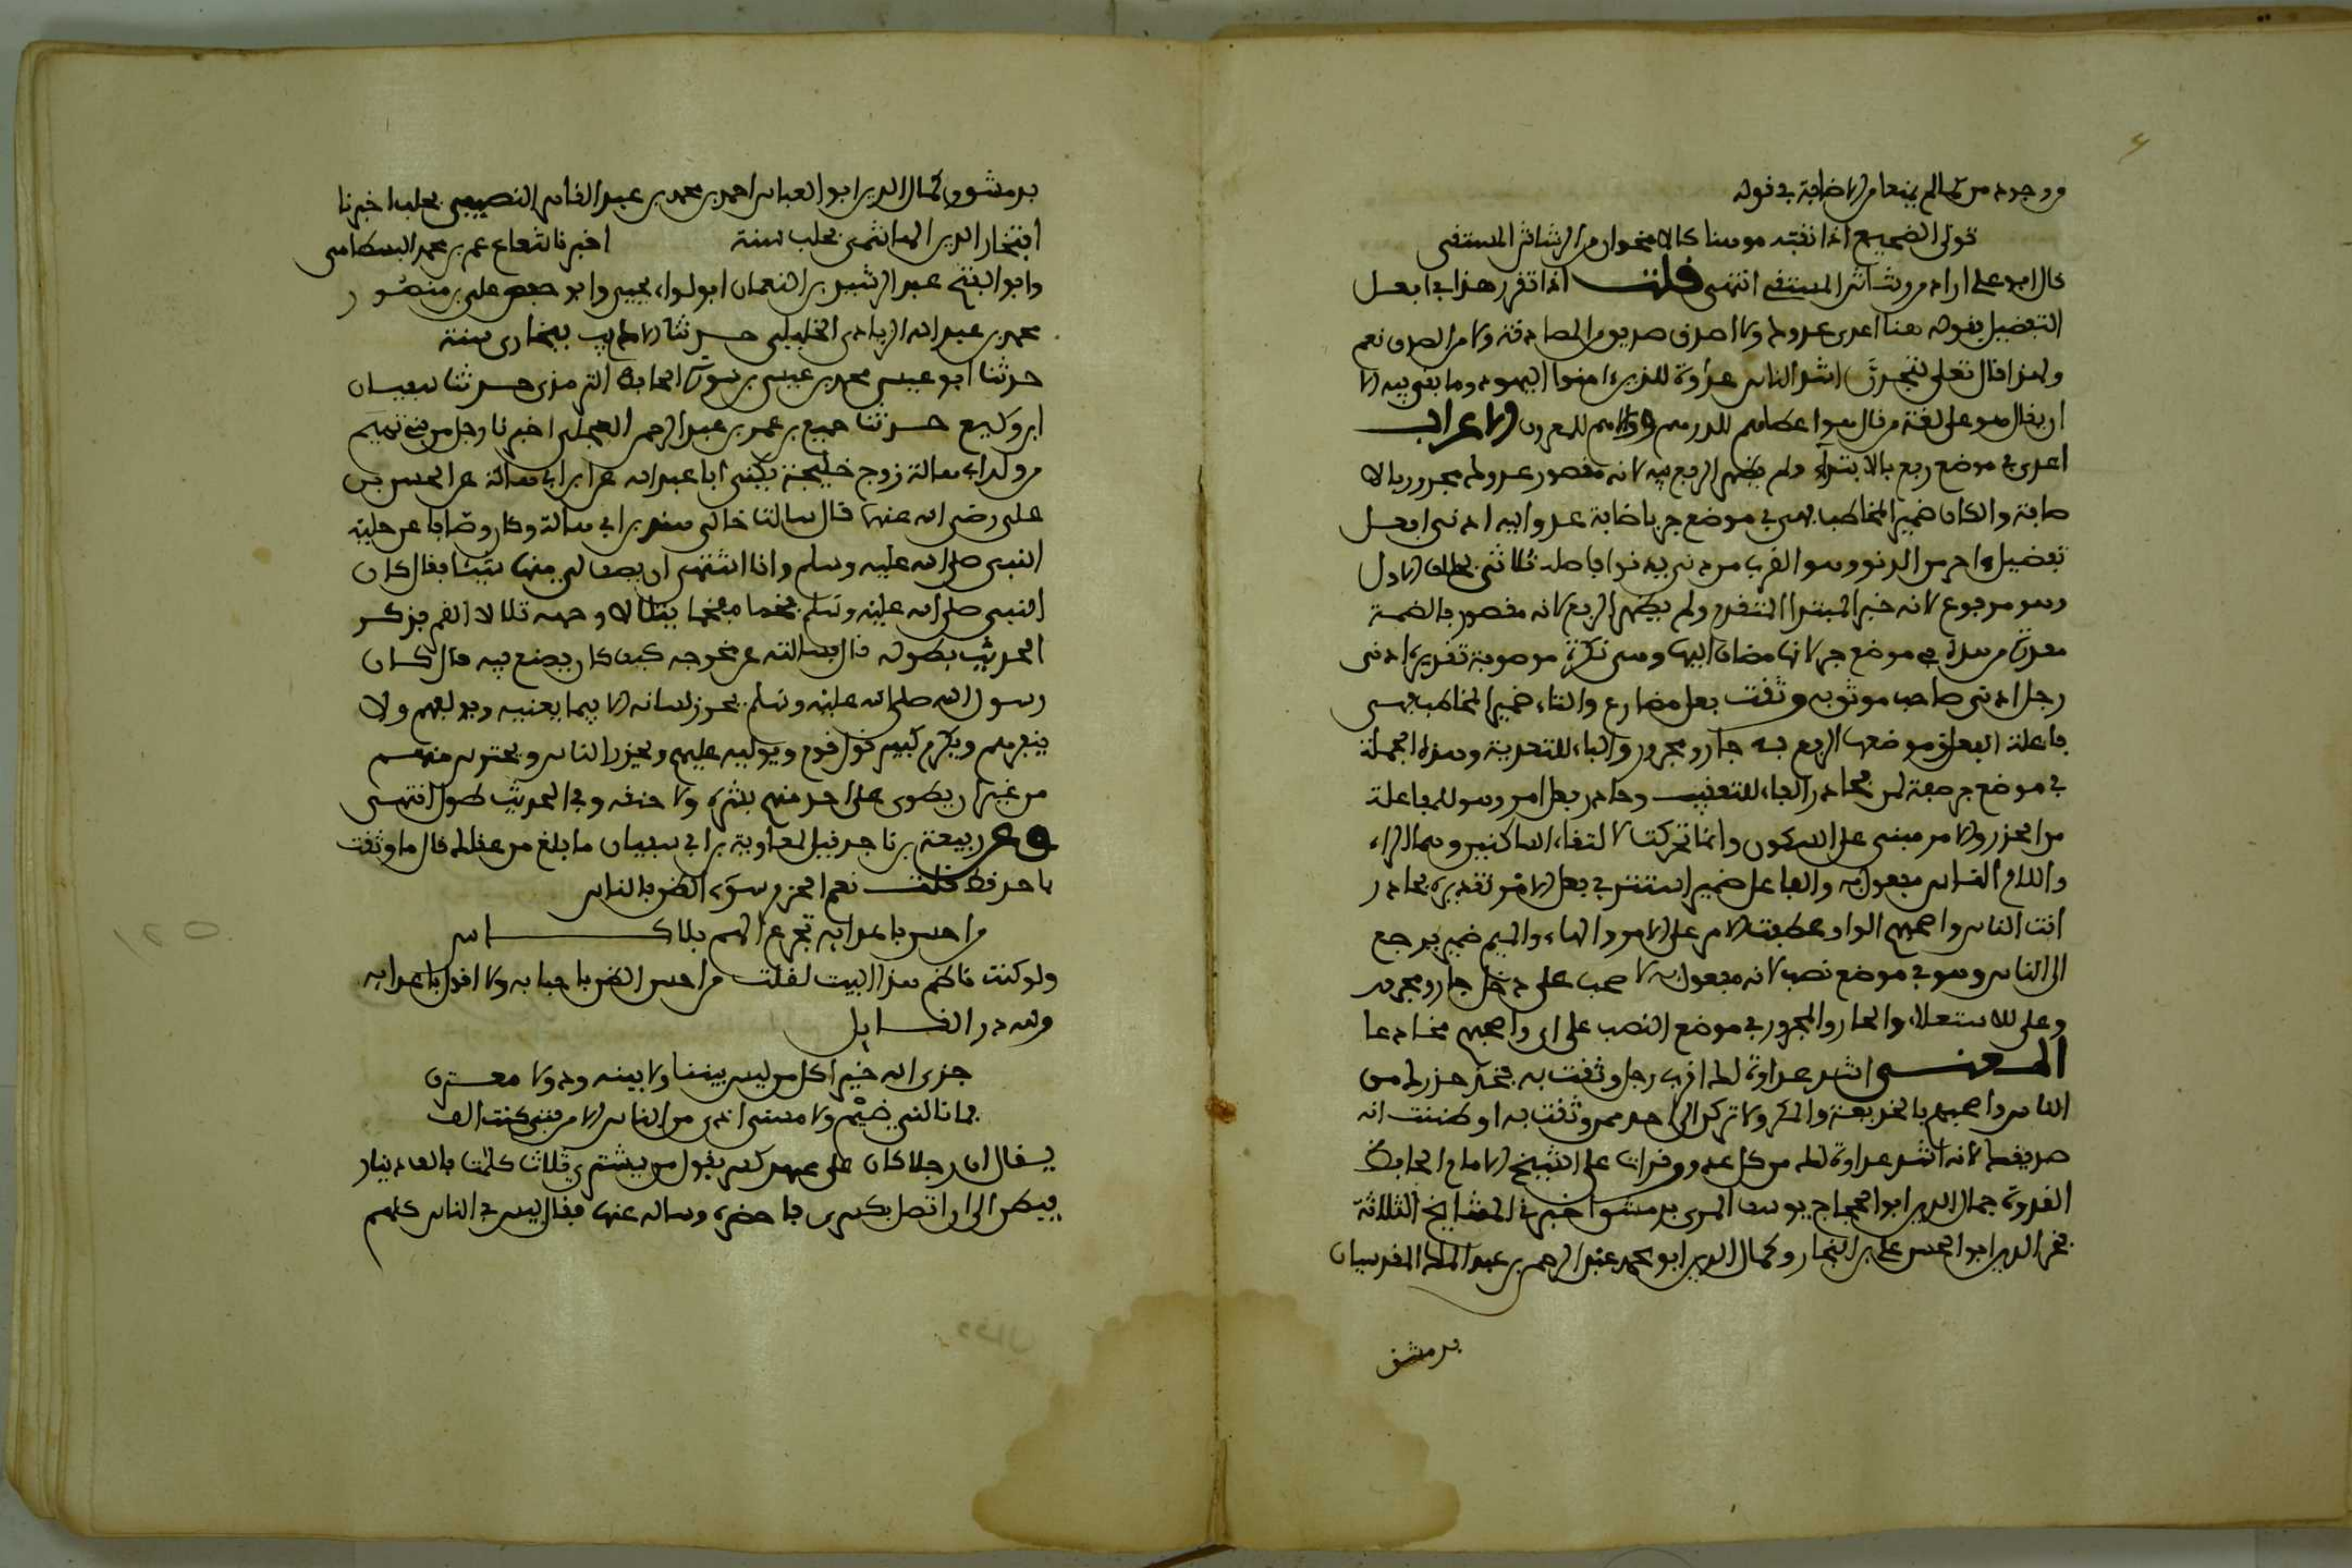 ووجوده من كما لم يمنعا من الاضافة في قوله
تولى الضجيع اذا تنبه موهنا كالاقحوان من الرشاش المستقي
قال ابو علي اراد من رشاش المستقي انتهى قلت اذا تقرر هذا في افعل
التفضيل بقوله هنا اعدى عدوك ولا اصدق صديق من المصادقة ولا من الصدق نعم
ولهذا قال تعلى لتجدن اشد الناس عداوة للذين امنوا اليهود وما بقي فيه الا
ان يقال هو على لغة من قال هو اعطاهم للدرهم واولاهم للمعروف الاعراب
اعدى في موضع رفع بالابتداء ولم يظهر الرفع فيه لانه مقصور عدوك مجرور بالا
ضافة والكاف ضمير المخاطب فهي في موضع جر باضافة عدو اليه ادنى افعل
تفضيل واحد من الدنو وهو القرب من دنى يدنو فاصله ثلاثي بخلاف الاول
وهو مرفوع لانه خبر المبتدا المتقدم ولم يظهر الرفع لانه مقصور بالضمة
مقدرة من هذه في موضع جر لانها مضاف اليها وهي نكرة موصوفة تقديره ادنى
رجل ادنى صاحب موثوق به وثقت فعل مضارع والتاء ضمير المخاطب فهي
فاعلة الفعل وموضعها الرفع به جار ومجرور والباء للتعدية وهذه الجملة
في موضع جر صفة لمن فحاذر الفاء للتعقيب وحاذر فعل امر وهو للمفاعلة
من الحذر والامر مبني على السكون وانما تحركت لالتقاء الساكنين وهما الراء
واللام الناس مفعول به والفاعل ضمير استتر في فعل الامر تقديره فحاذر
انت الناس واصحبهم الواو عطفت الامر على الامر والهاء والميم ضمير يرجع
الى الناس وهو في موضع نصب لانه مفعول به لاصحب على دخل جار ومجرور
وعلى للاستعلاء والجار والمجرور في موضع النصب على اي واصحبهم مخادعا
المعنى اشد عداوة لك اقرب رجل وثقت به فخذ حذرك من
الناس واصحبهم بالخديعة والمكر ولا تركن الى احد ممن وثقت به او ظننت انه
صديقك لانه اشد عداوة لك من كل عدو وقرات على الشيخ الامام الحافظ
القدوة جمال الدين ابو الحجاج يوسف المزي بدمشق اخبرني المشايخ الثلاثة
فخر الدين ابو الحسن علي بن البخار وكمال الدين ابو محمد عبد الرحيم بن عبد الملك المقدسيان
بدمشق
بدمشق وكمال الدين ابو العباس احمد بن محمد بن عبد القاهر النصيبي بحلب اخبرنا
افتخار الدين الهاشمي بحلب سنة اخبرنا شعاع عمر بن محمد البسطامي
وابو الفتح عبد الرشيد بن النعمان ابولوا يحيى وابو حفص علي بن منصور
محمد بن عبد الله الزيادي الخليلي حدثنا الاديب ببخارى سنة
حدثنا ابو عيسى محمد بن عيسى بن سورة الحافظ الترمذي حدثنا سفيان
ابن وكيع حدثنا جميع بن عمر بن عبد الرحمن العجلي اخبرنا رجل من بني تميم
من ولد ابي هالة زوج خديجة يكنى ابا عبد الله عن ابن ابي هالة عن الحسن بن
علي رضي الله عنهما قال سالت خالي هند بن ابي هالة وكان وصافا عن حلية
النبي صلى الله عليه وسلم وانا اشتهي ان يصف لي منها شيئا فقال كان
النبي صلى الله عليه وسلم فخما مفخما يتلالا وجهه تلالا القمر فذكر
الحديث بطوله قال فسالته عن مخرجه كيف كان يصنع فيه قال كان
رسول الله صلى الله عليه وسلم يحزن لسانه الا فيما يعنيه ويولفهم ولا
ينفرهم ويكرم كبير كل قوم ويوليه عليهم ويحذر الناس ويحترس منهم
من غير ان يطوي على احد منهم بشره ولا خلقه وفي الحديث طول انتهى
وعن ربيعة بن ناجد قيل لمعاوية بن ابي سفيان ما بلغ من عقلك قال ما وثقت
باحد قط قلت نعم الحزم سوء الظن بالناس
من احسن باعدايه تجرع الهم بلا كاس
ولو كنت ناظم هذا البيت لقلت من احسن الظن باحبابه ولا اقول باعدايه
ولله در القايل
جزى الله خيرا كل من ليس بيننا ولا بينه ود ولا معرف
فما نالني ضيم ولا مسني اذى من الناس الا من فتى كنت الف
يقال ان رجلا كان على عهد كسرى يقول من يشتري ثلاث كلمات بالف دينار
فيطنز الى ان اتصل بكسرى فاحضره وساله عنها فقال ليس في الناس كلهم